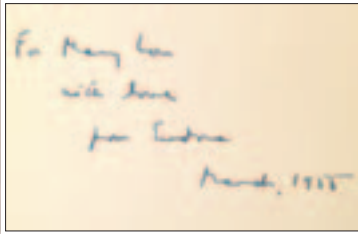 For Mary Lou
with love
from Eudora
March, 1955